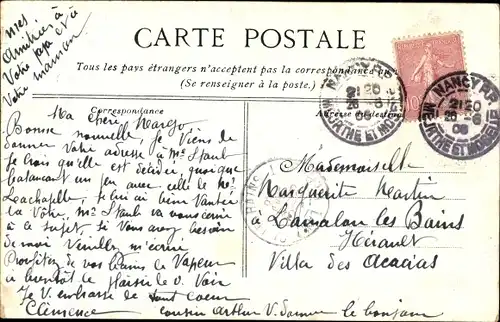 mes
Amitiés à
Votre papa et à
Votre maman
CARTE POSTALE
Tous les pays étrangers n'acceptent pas la correspondance au
(Se renseigner à la poste)
10
NANCY PPAL
21 20
26 -6
06
MEURTHE ET MOSELLE
NANCY PPAL
21 20
26 -6
06
MEURTHE ET MOSELLE
Correspondance
Adresse du destinataire
Ma chère Margo
Bonne nouvelle, je Viens de
donner Votre adresse à Me Staul
je crois qu'elle est décidée, quoique
balançant un peu avec celle de Me
Lachapelle, je lui ai bien Vantée
la Vôtre, Me Staul va vous écrire
à ce sujet, si Vous avez besoin
de moi Veuillez m'écrire
Profitez de vos bains de Vapeur
à bientôt le plaisir de V. Voir
Je V. embrasse de tout coeur
Clémence
cousin Arthur V. donne le bonjour
Mademoiselle
Marguerite Martin
à Lamalou les Bains
Hérault
Villa des Acacias